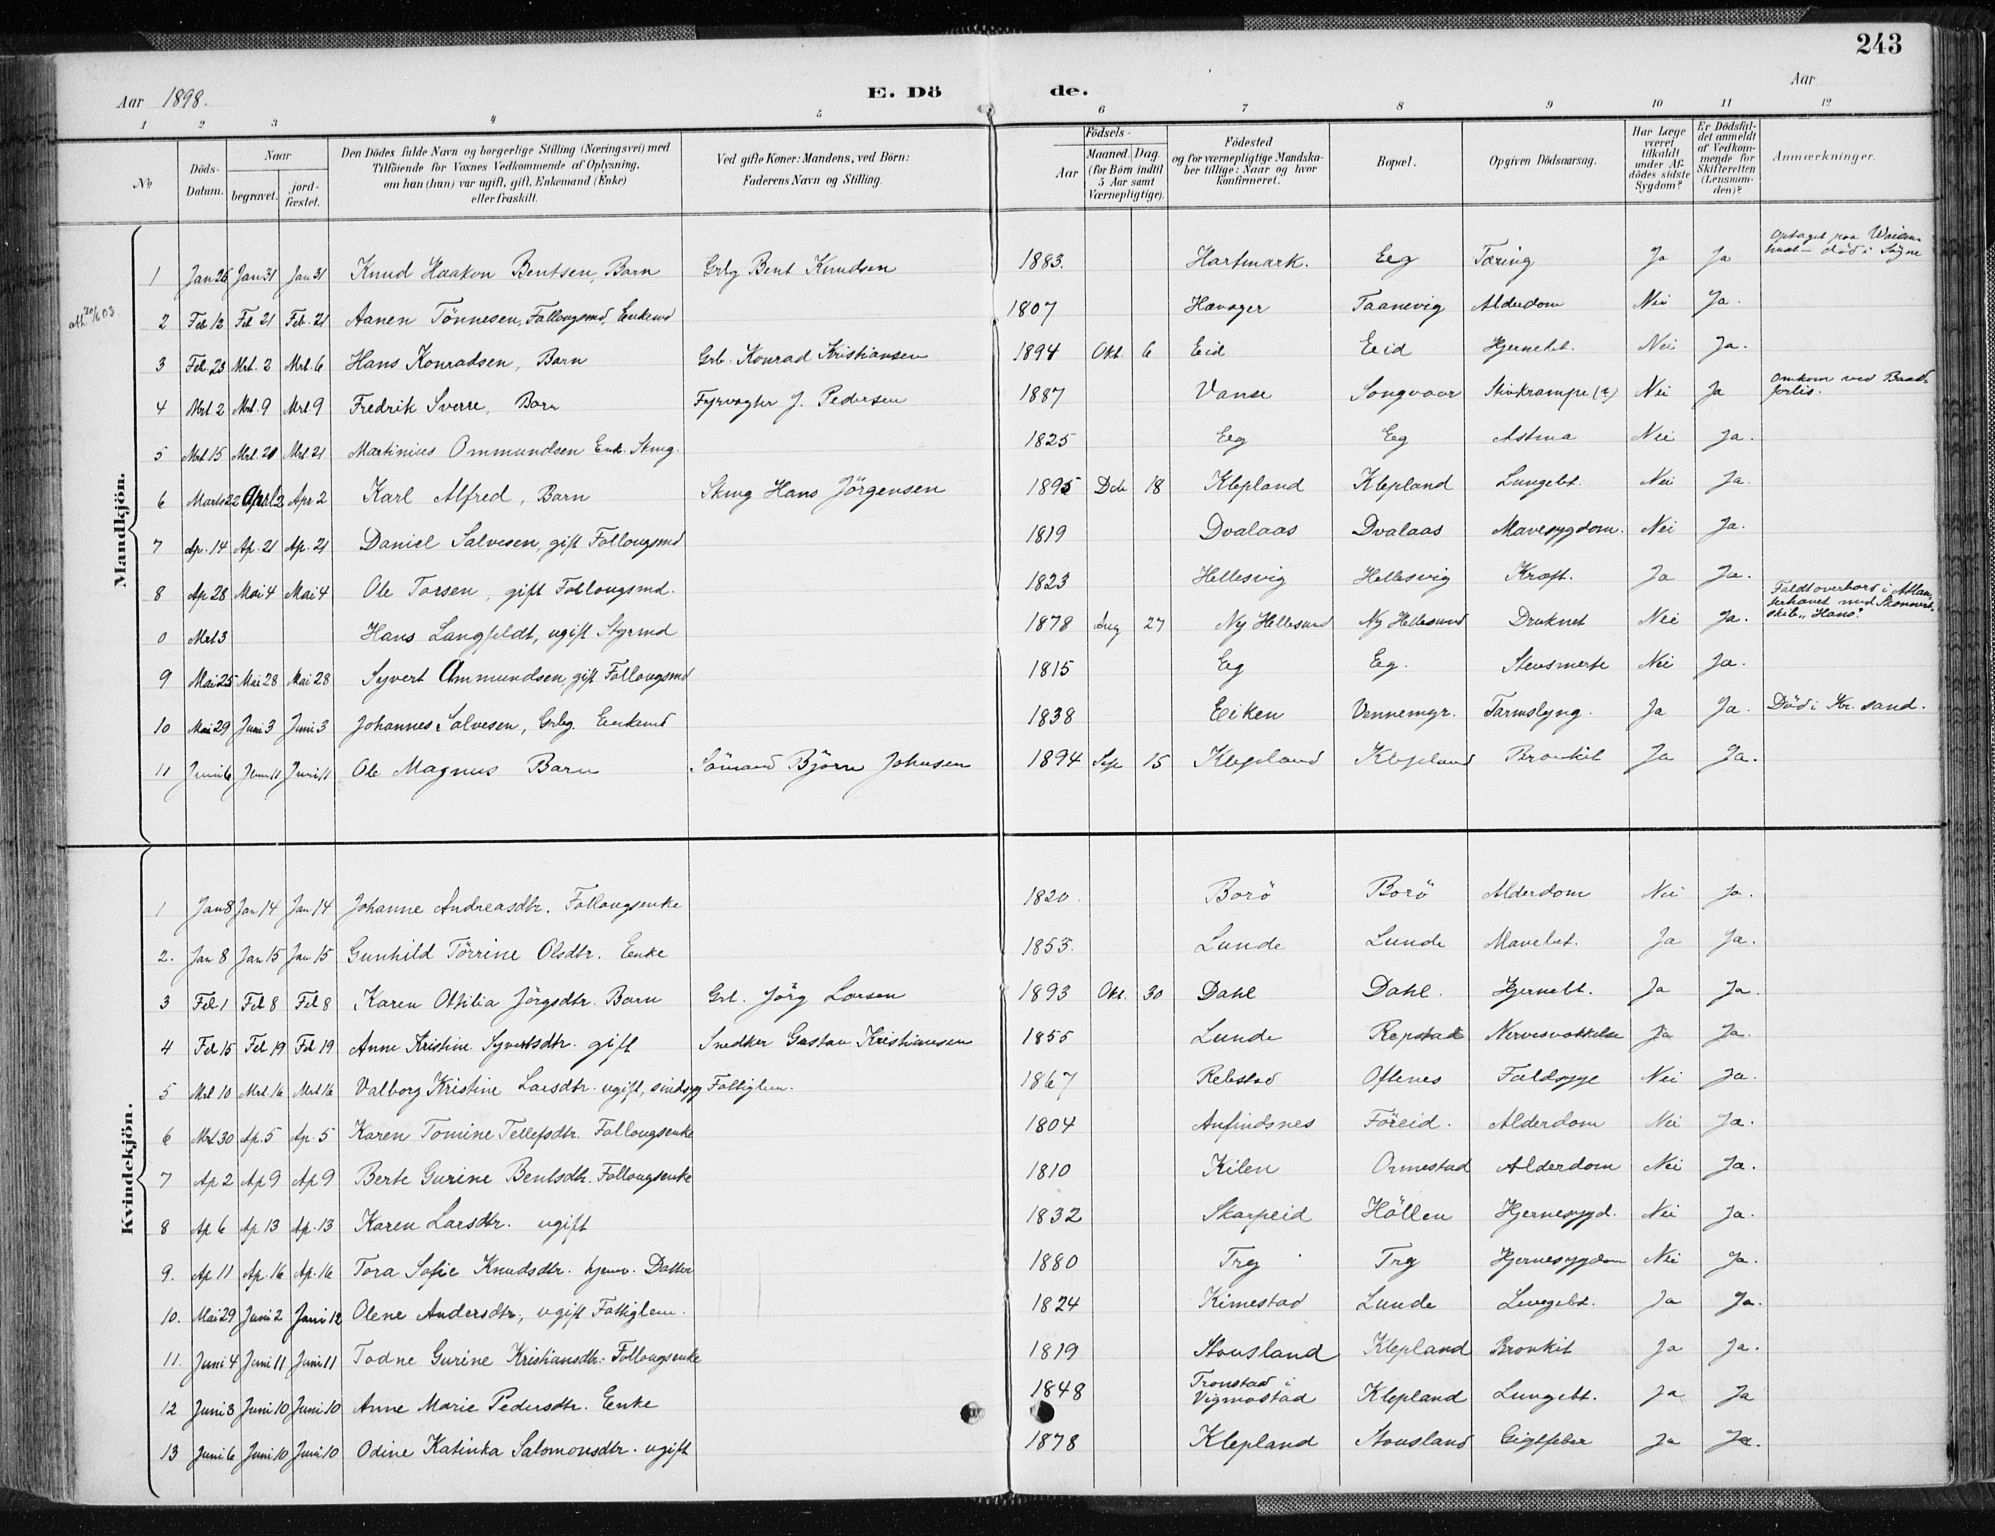 243
Aar 1898.
E. Dö
de.
Aar
1 2 3 4 5 6 7 8 9 10 11 12
No
Döds-Datum.
Naar
begravet.
jord-fæstet.
Den Dödes fulde Navn og borgerlige Stilling (Næringsvei) med
Tilföiende for Voxnes Vedkommende af Oplysning,
om han (hun) var ugift, gift, Enkemand (Enke)
eller fraskilt.
Ved gifte Koner: Mandens, ved Börn:
Faderens Navn og Stilling.
Födsels-
Aar
Maaned. Dag.
(for Börn indtil
5 Aar samt
Værnepligtige).
Födested
og for værnepligtige Mandska-
ber tillige: Naar og hvor
konfirmeret.
Bopæl.
Opgiven Dödsaarsag.
Har Læge
været
tilkaldt
under Af-
dödes sidste
Sygdom?
Er Dödsfal-
det anmeldt
af Vedkom-
mende for
Skifteretten
(Lensman-
den)?
Anmærkninger.
Mandkjön.
1 Jan 26 Jan 31 Jan 31 Knud Haakon Bentsen, Barn Grbg Bent Knudsen 1883. Hartmark. Eeg Tæring Ja Ja Optaget paa - död i Sögne
2 Feb 12 Feb 21 Feb. 21 Aanen Tönnesen, Follougsmd, Enkemd 1807 Havager Taanevig Alderdom Nei Ja.
3 Feb. 23 Mrt. 2 Mrt. 6 Hans Konradsen, Barn Grb. Konrad Kristiansen 1894 Okt. 6 Eid Eid Hjernebet. Nei Ja.
4 Mrt 2 Mrt. 9 Mrt. 9 Fredrik Sverre, Barn Fyrvogter J. Pedersen 1887 Vanse Songvaar Stivkrampe (?) Nei Ja Omkom ved Baad-
forlis.
5 Mrt 15 Mrt. 21 Mrt. 21 Martinius Ommundsen Enk. Skmg. 1825 Eeg Eeg Astma Nei Ja.
6 Marts 22 April 2 Apr 2 Karl Alfred, Barn Skmg Hans Jörgensen 1895 Deb 18 Klepland Klepland Lungebt. Nei Ja.
7 Ap. 14 Ap. 21 Ap. 21 Daniel Salvesen, gift Follougsmd 1819 Dvalaas Dvalaas Mavesygdom. Nei Ja.
8 Ap 28 Mai 4 Mai 4 Ole Torsen, gift Follougsmd. 1823 Hellesvig Hellesvig Kræft. Ja Ja.
0 Mrt 3 Hans Langfeldt, ugift Styrmd 1878 Aug 27 Ny Hellesund Ny Hellesund Druknet Nei Ja. Faldt overbord i Atlan-
terhavet med Skonnert-
skib "Hans".
9 Mai 25 Mai 28 Mai 28 Syvert Ommundsen, gift Follougsmd 1815 Eeg Eeg. Stensmerte Nei Ja.
10 Mai 29 Juni 3 Juni 3 Johannes Salvesen, Grbg. Enkemd 1838 Eiken Vennemyr. Tarmslyng. Ja Ja. Död i Kr. sand.
11 Juni 6 Juni 11 Juni 11 Ole Magnus Barn Sömand Björn Johnsen 1894 Sep 15 Klepland Klepland Bronkit Ja Ja.
Kvindekjön.
1 Jan 8 Jan 14 Jan 14 Johanne Andreasdtr. Follougsenke 1820. Borö Borö Alderdom Nei Ja.
2. Jan 8 Jan 15 Jan 15 Gunhild Törrine Olsdtr. Enke 1853. Lunde Lunde Mavebet. Ja Ja.
3 Feb 1 Feb 8 Feb 8 Karen Otilia Jörgsdtr. Barn Grb. Jörg Larsen 1893 Okt. 30 Dahl Dahl. Hjernebt. Ja Ja.
4 Feb 15 Feb 19 Feb 19 Anne Kristine Syvertsdtr. gift Snedker Gustav Kristiansen 1855 Lunde Repstad Nervesvækkelse Ja Ja.
5 Mrt 10 Mrt. 16 Mrt 16 Valborg Kristine Larsdtr. ugift, sindsyg Fattiglem. 1867 Rebstad Oftenes Faldsyge Nei Ja.
6 Mrt 30 Ap. 5 Ap. 5 Karen Tomine Tellefsdtr. Follougsenke 1804 Anfindsnes Föreid. Alderdom Nei Ja.
7 Ap 2 Ap 9 Ap 9 Berte Gurine Bentsdtr. Follougsenke 1810 Kilen Ormestad Alderdom Nei Ja.
8 Ap 6 Ap 13 Ap. 13 Karen Larsdtr. ugift 1832 Skarpeid Höllen Hjernesygd. Nei Ja.
9. Ap 11 Ap. 16 Ap. 16 Tora Sofie Knudsdtr. hjemv. Datter 1880 Trey Trey Hjernesygdom Nei Ja.
10. Mai 29 Juni 2 Juni 12 Olene Andersdtr., ugift Fattiglem. 1824 Kimestad Lunde Lungebt. Ja Ja.
11. Juni 4 Juni 11 Juni 11 Todne Gurine Kristiansdtr. Follougsenke 1819 Stousland Klepland Bronkit Ja Ja.
12 Juni 3 Juni 10 Juni 10 Anne Marie Pedersdtr. Enke 1848 Tronstad i
Vigmostad Klepland Lungebt. Ja Ja
13 Juni 6 Juni 10 Juni 10 Odine Katinka Salomonsdtr. ugift 1878 Klepland Stousland Gigtfeber Ja Ja.